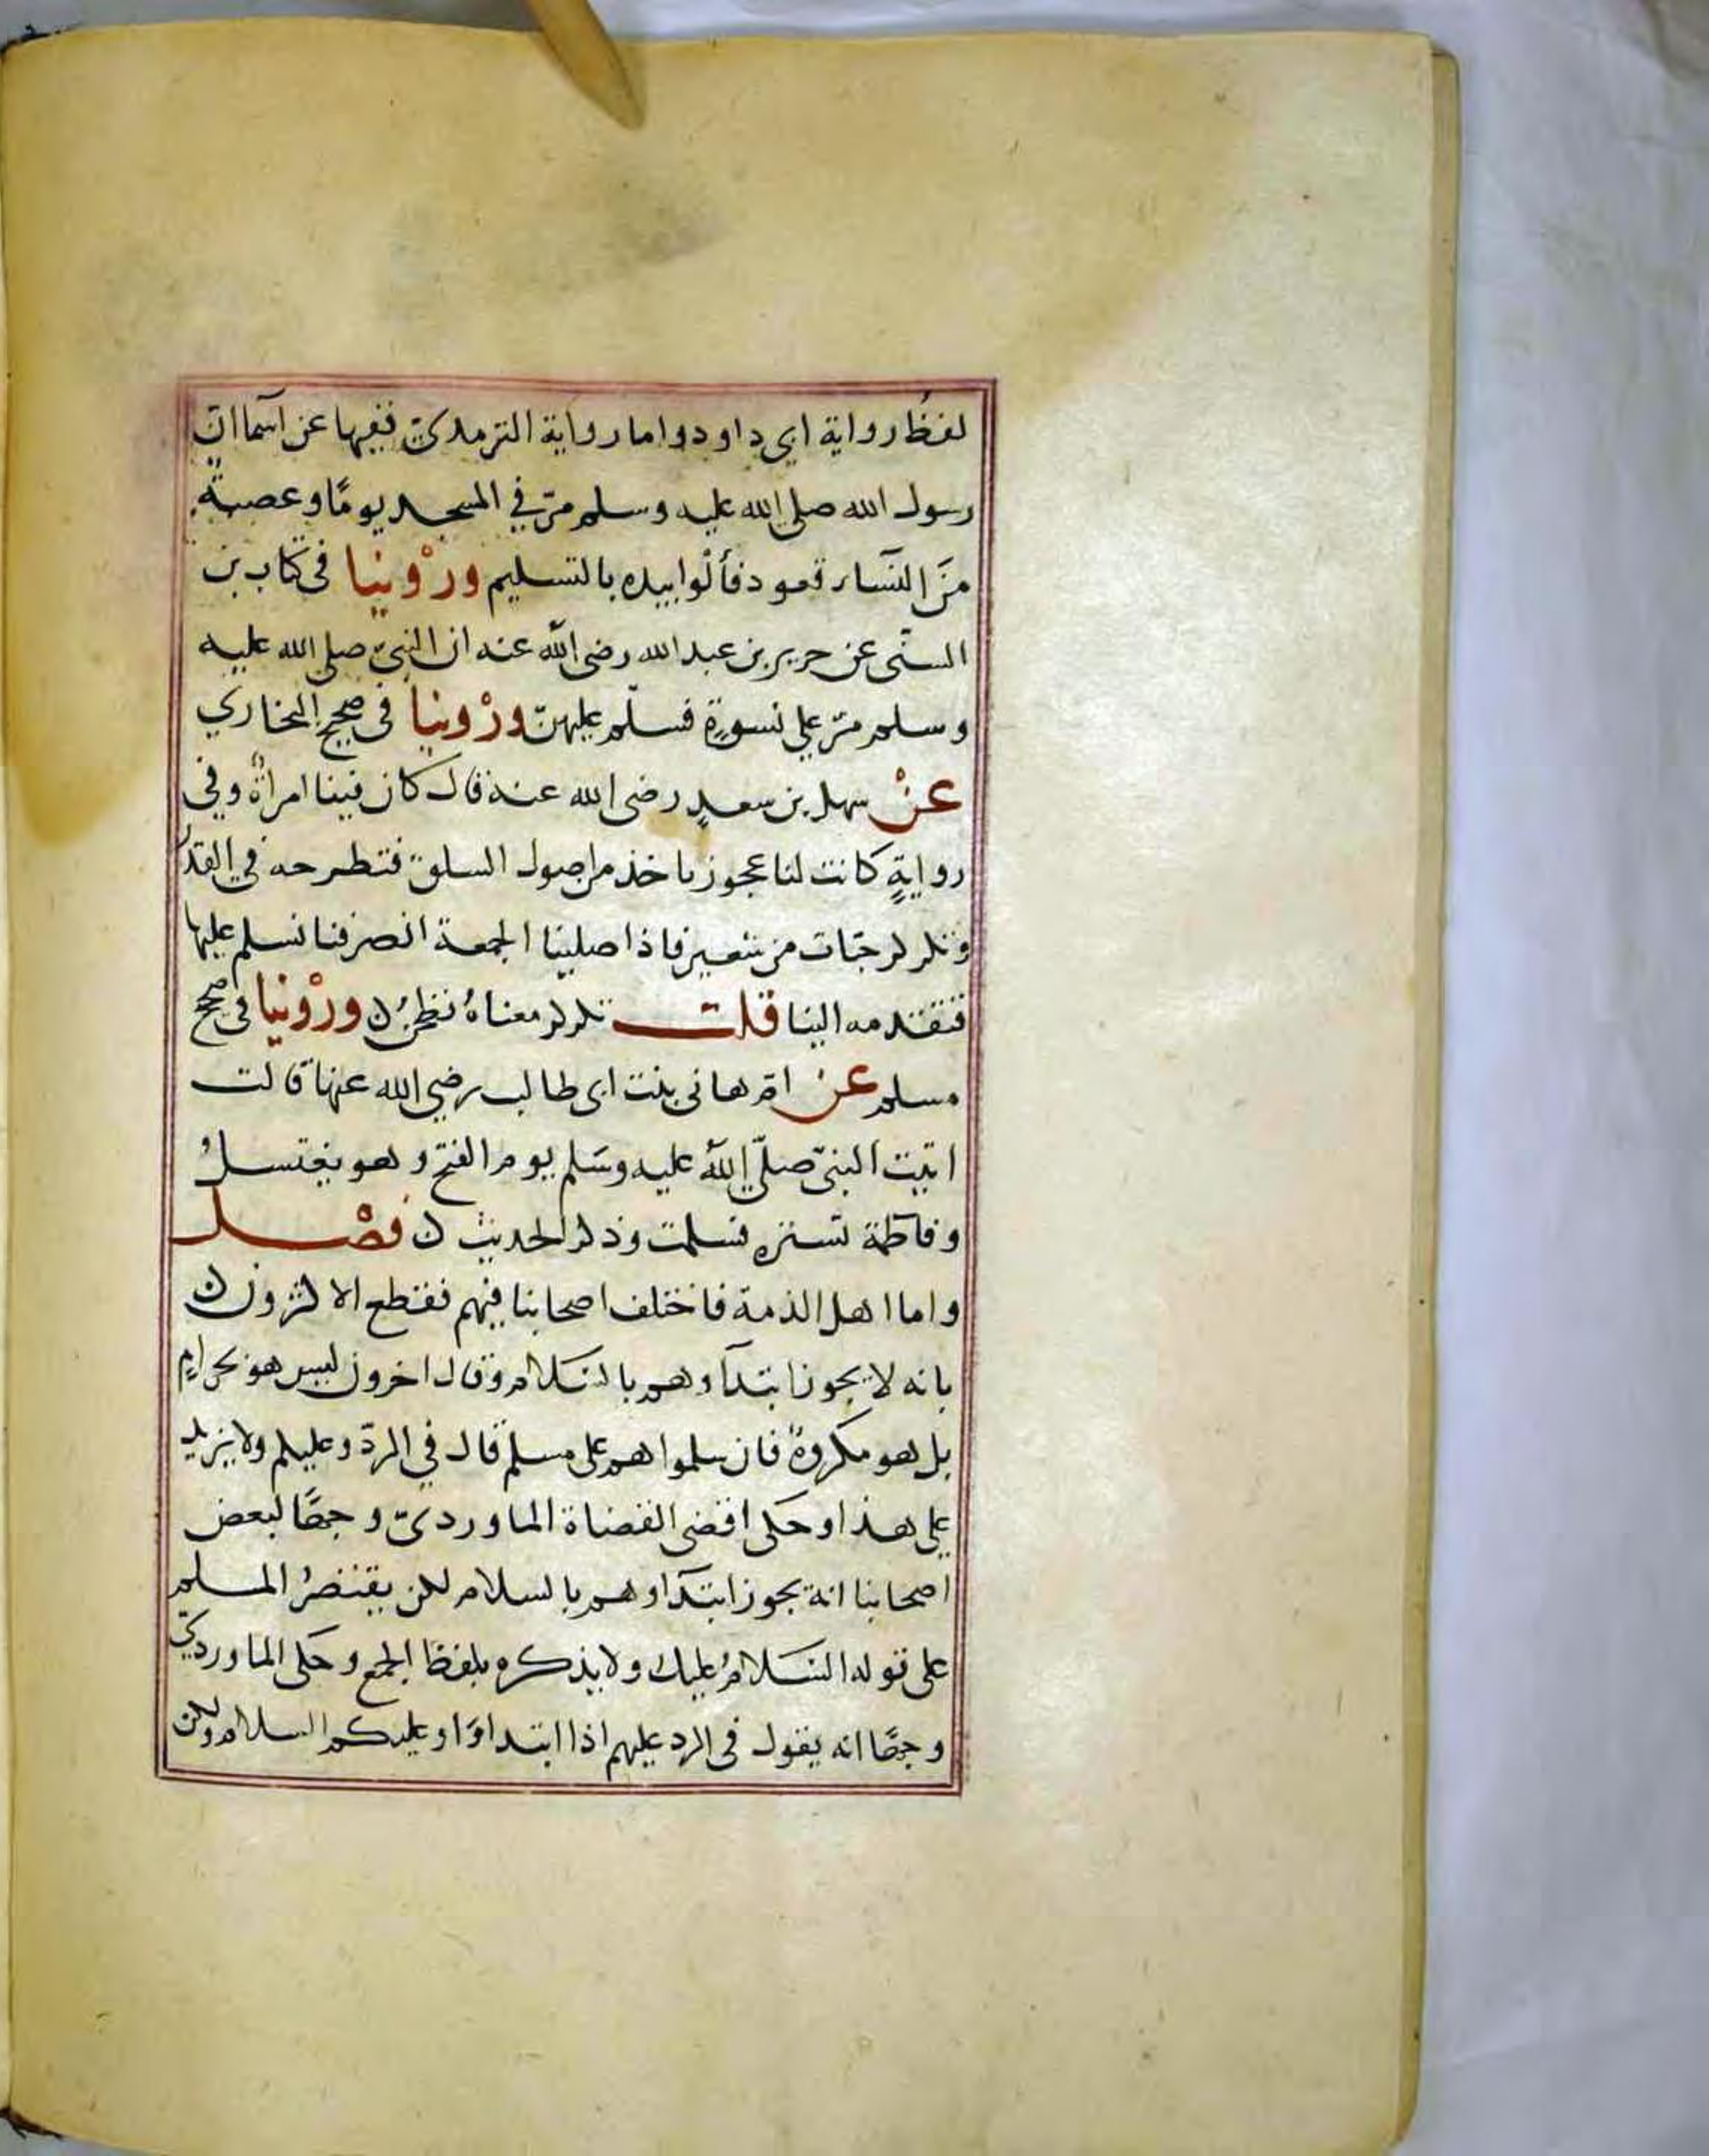 لفظ رواية ابي داود واما رواية الترمذي ففيها عن اسما ان
رسول الله صلى الله عليه وسلم مرّ في المسجد يومًا وعصبة
منَ النّساء قعود فألْوا بيده بالتسليم ورْوينا في كتاب بن
السنّى عن جرير بن عبد الله رضى الله عنه ان النبيّ صلى الله عليه
وسلم مرّ على نسوةٍ فسلّم عليهنّ ورْوينا في صحيح البخاري
عنْ سهل بن سعدٍ رضى الله عنه قال كان فينا امراةٌ وفي
روايةٍ كانت لنا عجوز تاخذ من اصول السلق فتطرحه في القدر
وتكركر حبّات من شعير فاذا صلينا الجمعة انصرفنا نسلم عليها
فتقدمه الينا قلت تكركر معناهُ تطحنُ ن ورْوينا في صحيح
مسلم عن امّ هانى بنت ابى طالب رضي الله عنها قالت
اتيت النبيّ صلّى اللهُ عليه وسَلم يوم الفتح وهو يغتسلُ
وفاطمة تستره فسلمت وذكر الحديث ن فصْل
واما اهل الذمة فاختلف اصحابنا فيهم فقطع الاكثرون ن
بانه لا يجوز ابتدآوهم بالسّلام وقال اخرون ليس هو بحرامٍ
بل هو مكروهٌ فان سلموا هم على مسلم قال في الردّ وعليكم ولا يزيد
على هذا وحَكى اقضى القضاة الماورديّ وجهًا لبعض
اصحابنا انه يجوز ابتدآوهم بالسلام لكن يقتصرُ المسلم
على قوله السّلامُ عليك ولا يذكره بلفظ الجمع وحَكى الماورديّ
وجهًا انه يقول في الرد عليهم اذا ابتداوَا وعليكم السلام ولكن